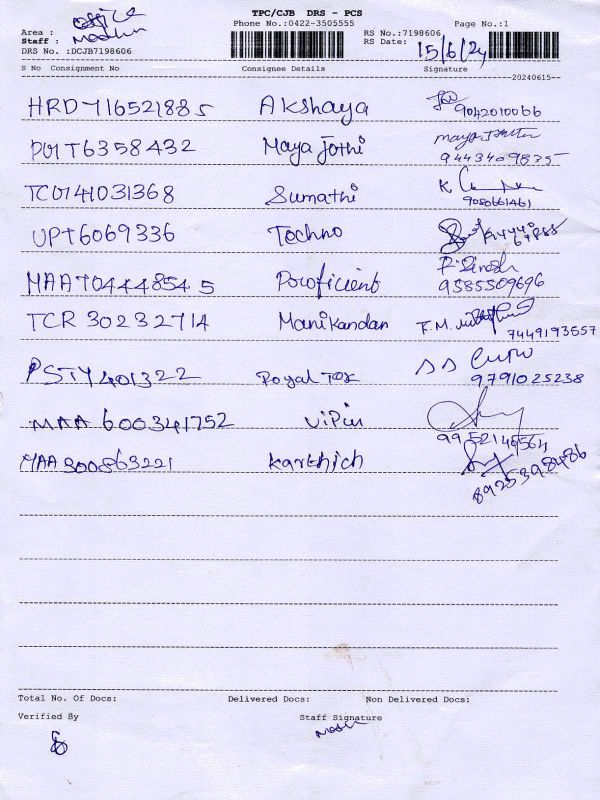 TPC/CJB DRS - PCS
Phone No.:0422-3505555 Page No.:1
Area : office
Staff :
DRS No. :DCJB7198606
RS No.:7198606
RS Date: 15/6/24
S No Consignment No Consignee Details Signature
--20240615--
HRD716521885 Akshaya 9042010066
PUT6358432 Maya Jothi 9443409835
TCU741031368 Sumathi K 9080661461
UPT6069336 Techno
MAA704448545 Poroficient 9585509696
TCR 30232714 Manikandan 7449193557
PSTY401322 Royal Tex 9791025238
MAA 600341752 Vipin
MAA300863221 Karthich 89253 98486
Total No. Of Docs: Delivered Docs: Non Delivered Docs:
Verified By Staff Signature